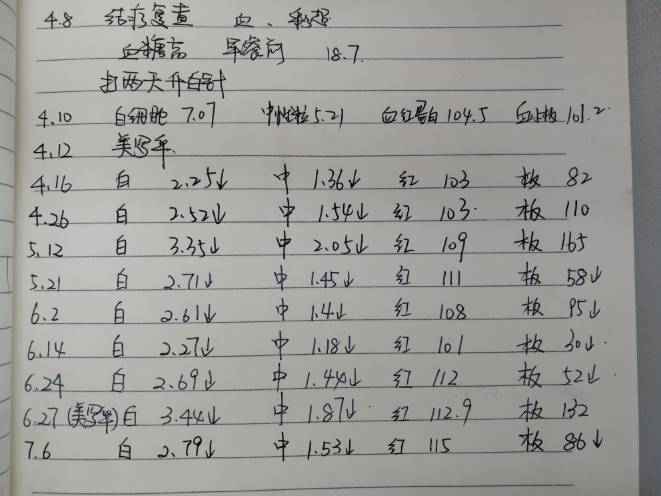 4.8 结疗复查 血、彩超
血糖高 早餐前 18.7.
打两天升白针
4.10 白细胞 7.07 中性粒 5.21 血红蛋白 104.5 血小板 101.2
4.12 美罗华.
4.16 白 2.25↓ 中 1.36↓ 红 103 板 82
4.26 白 2.52↓ 中 1.54↓ 红 103. 板 110
5.12 白 3.35↓ 中 2.05↓ 红 109 板 165
5.21 白 2.71↓ 中 1.45↓ 红 111 板 58↓
6.2 白 2.61↓ 中 1.4↓ 红 108 板 95↓
6.14 白 2.27↓ 中 1.18↓ 红 101 板 30↓.
6.24 白 2.69↓ 中 1.44↓ 红 112 板 52↓
6.27 (美罗华) 白 3.44↓ 中 1.87↓ 红 112.9 板 132
7.6 白 2.79↓ 中 1.53↓ 红 115 板 86↓